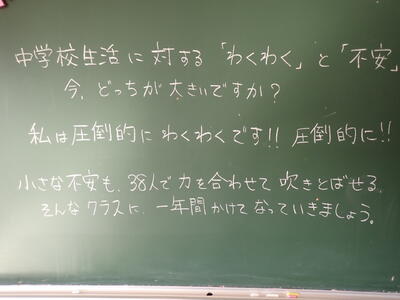 中学校生活に対する「わくわく」と「不安」
今、どっちが大きいですか？
私は圧倒的にわくわくです!! 圧倒的に!!
小さな不安も、38人で力を合わせて吹きとばせる、
そんなクラスに、一年間かけてなっていきましょう。